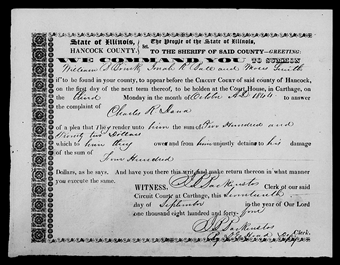 State of Illinois, } ss. The People of the State of Illinois,
HANCOCK COUNTY, TO THE SHERIFF OF SAID COUNTY—GREETING:
WE COMMAND YOU TO SUMMON
William Smith
if to be found in your county, to appear before the CIRCUIT COURT of said county of Hancock,
on the first day of the next term thereof, to be holden at the Court House, in Carthage, on
the third Monday in the month of October A.D. 1844 to answer
the complaint of
Charles R Dana
of a plea that they render unto him the sum of Five Hundred and
Dollars
which they owe and from him unjustly detains to his damage of
Four Hundred
Dollars, as he says. And have you there this writ and make return thereon in what manner
you execute the same.
WITNESS, Clerk of our said
Circuit Court at Carthage, this
day of September in the year of Our Lord
one thousand eight hundred and forty-four
Clerk.